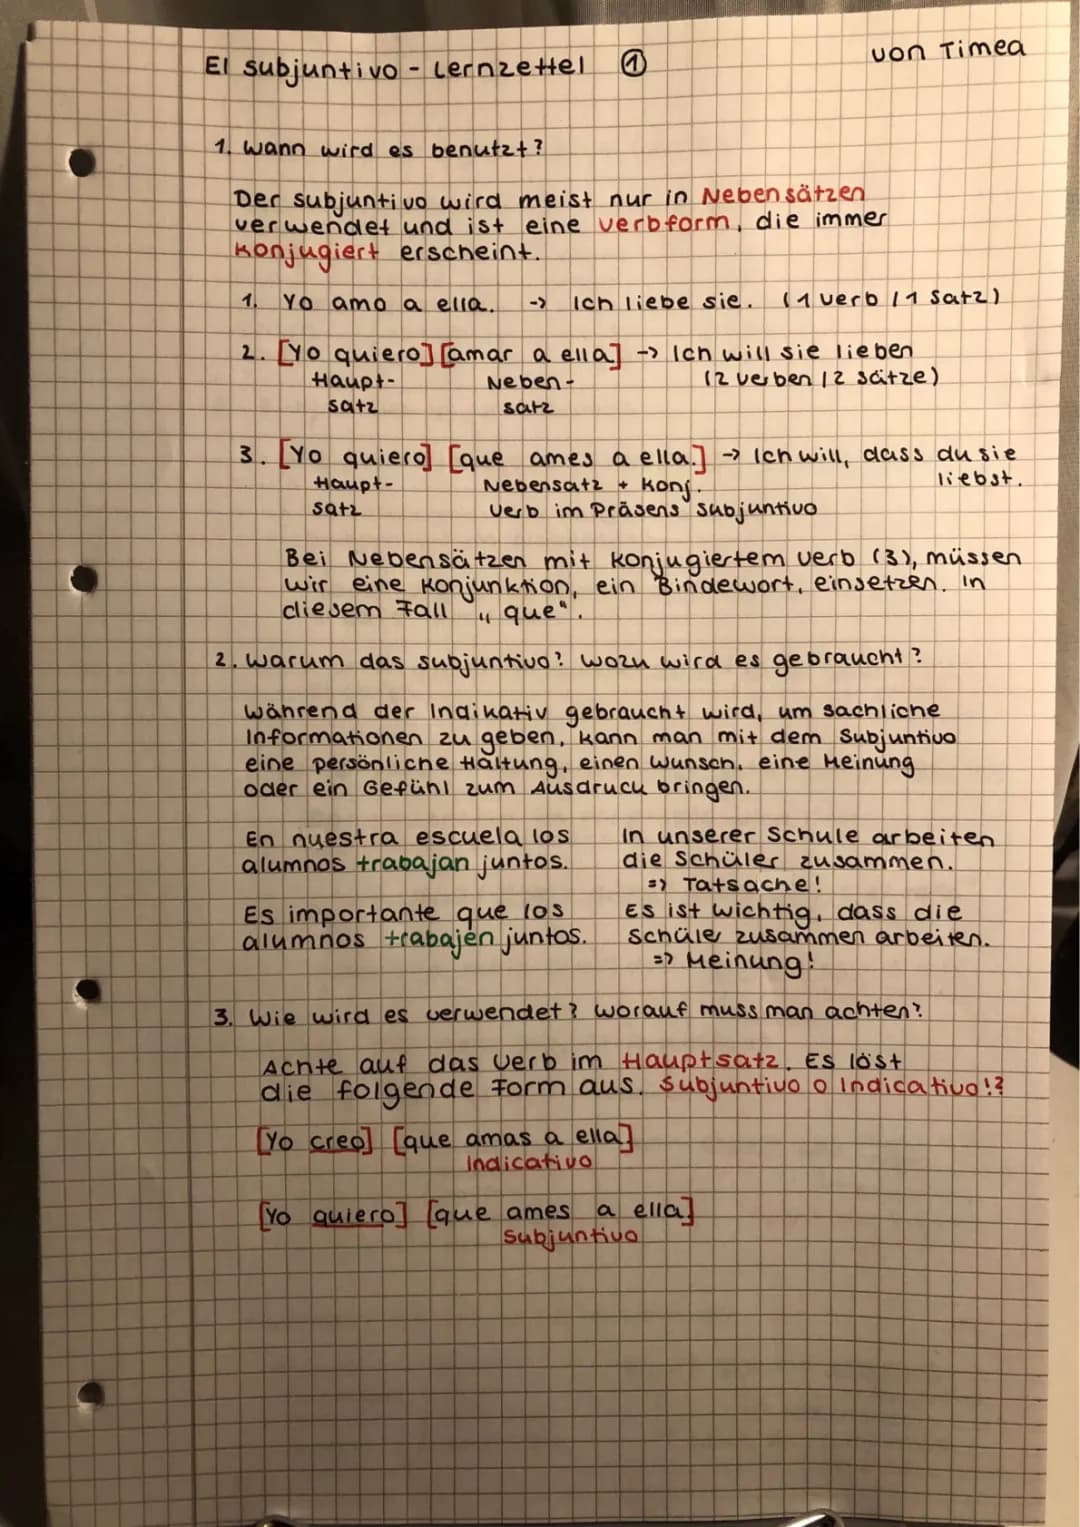 El subjuntivo - Lernzettel ①
von Timea
1. Wann wird es benutzt?
Der subjuntivo wird meist nur in Nebensätzen
verwendet und ist eine Verbform, die immer
konjugiert erscheint.
1. Yo amo a ella. -> Ich liebe sie. (1 Verb / 1 Satz)
2. [Yo quiero] [amar a ella] -> Ich will sie lieben
Haupt- Neben- (2 Verben / 2 Sätze)
satz satz
3. [Yo quiero] [que ames a ella.] -> Ich will, dass du sie
Haupt- Nebensatz + konj. liebst.
satz Verb im Präsens subjuntivo
Bei Nebensätzen mit konjugiertem Verb (3), müssen
wir eine Konjunktion, ein Bindewort, einsetzen. In
diesem Fall „que“.
2. Warum das subjuntivo? Wozu wird es gebraucht?
Während der Indikativ gebraucht wird, um sachliche
Informationen zu geben, kann man mit dem Subjuntivo
eine persönliche Haltung, einen Wunsch, eine Meinung
oder ein Gefühl zum Ausdruck bringen.
En nuestra escuela los In unserer Schule arbeiten
alumnos trabajan juntos. die Schüler zusammen.
=> Tatsache!
Es importante que los Es ist wichtig, dass die
alumnos trabajen juntos. Schüler zusammen arbeiten.
=> Meinung!
3. Wie wird es verwendet? Worauf muss man achten?
Achte auf das Verb im Hauptsatz. Es löst
die folgende Form aus. Subjuntivo o Indicativo!?
[Yo creo] [que amas a ella]
Indicativo
[Yo quiero] [que ames a ella]
Subjuntivo